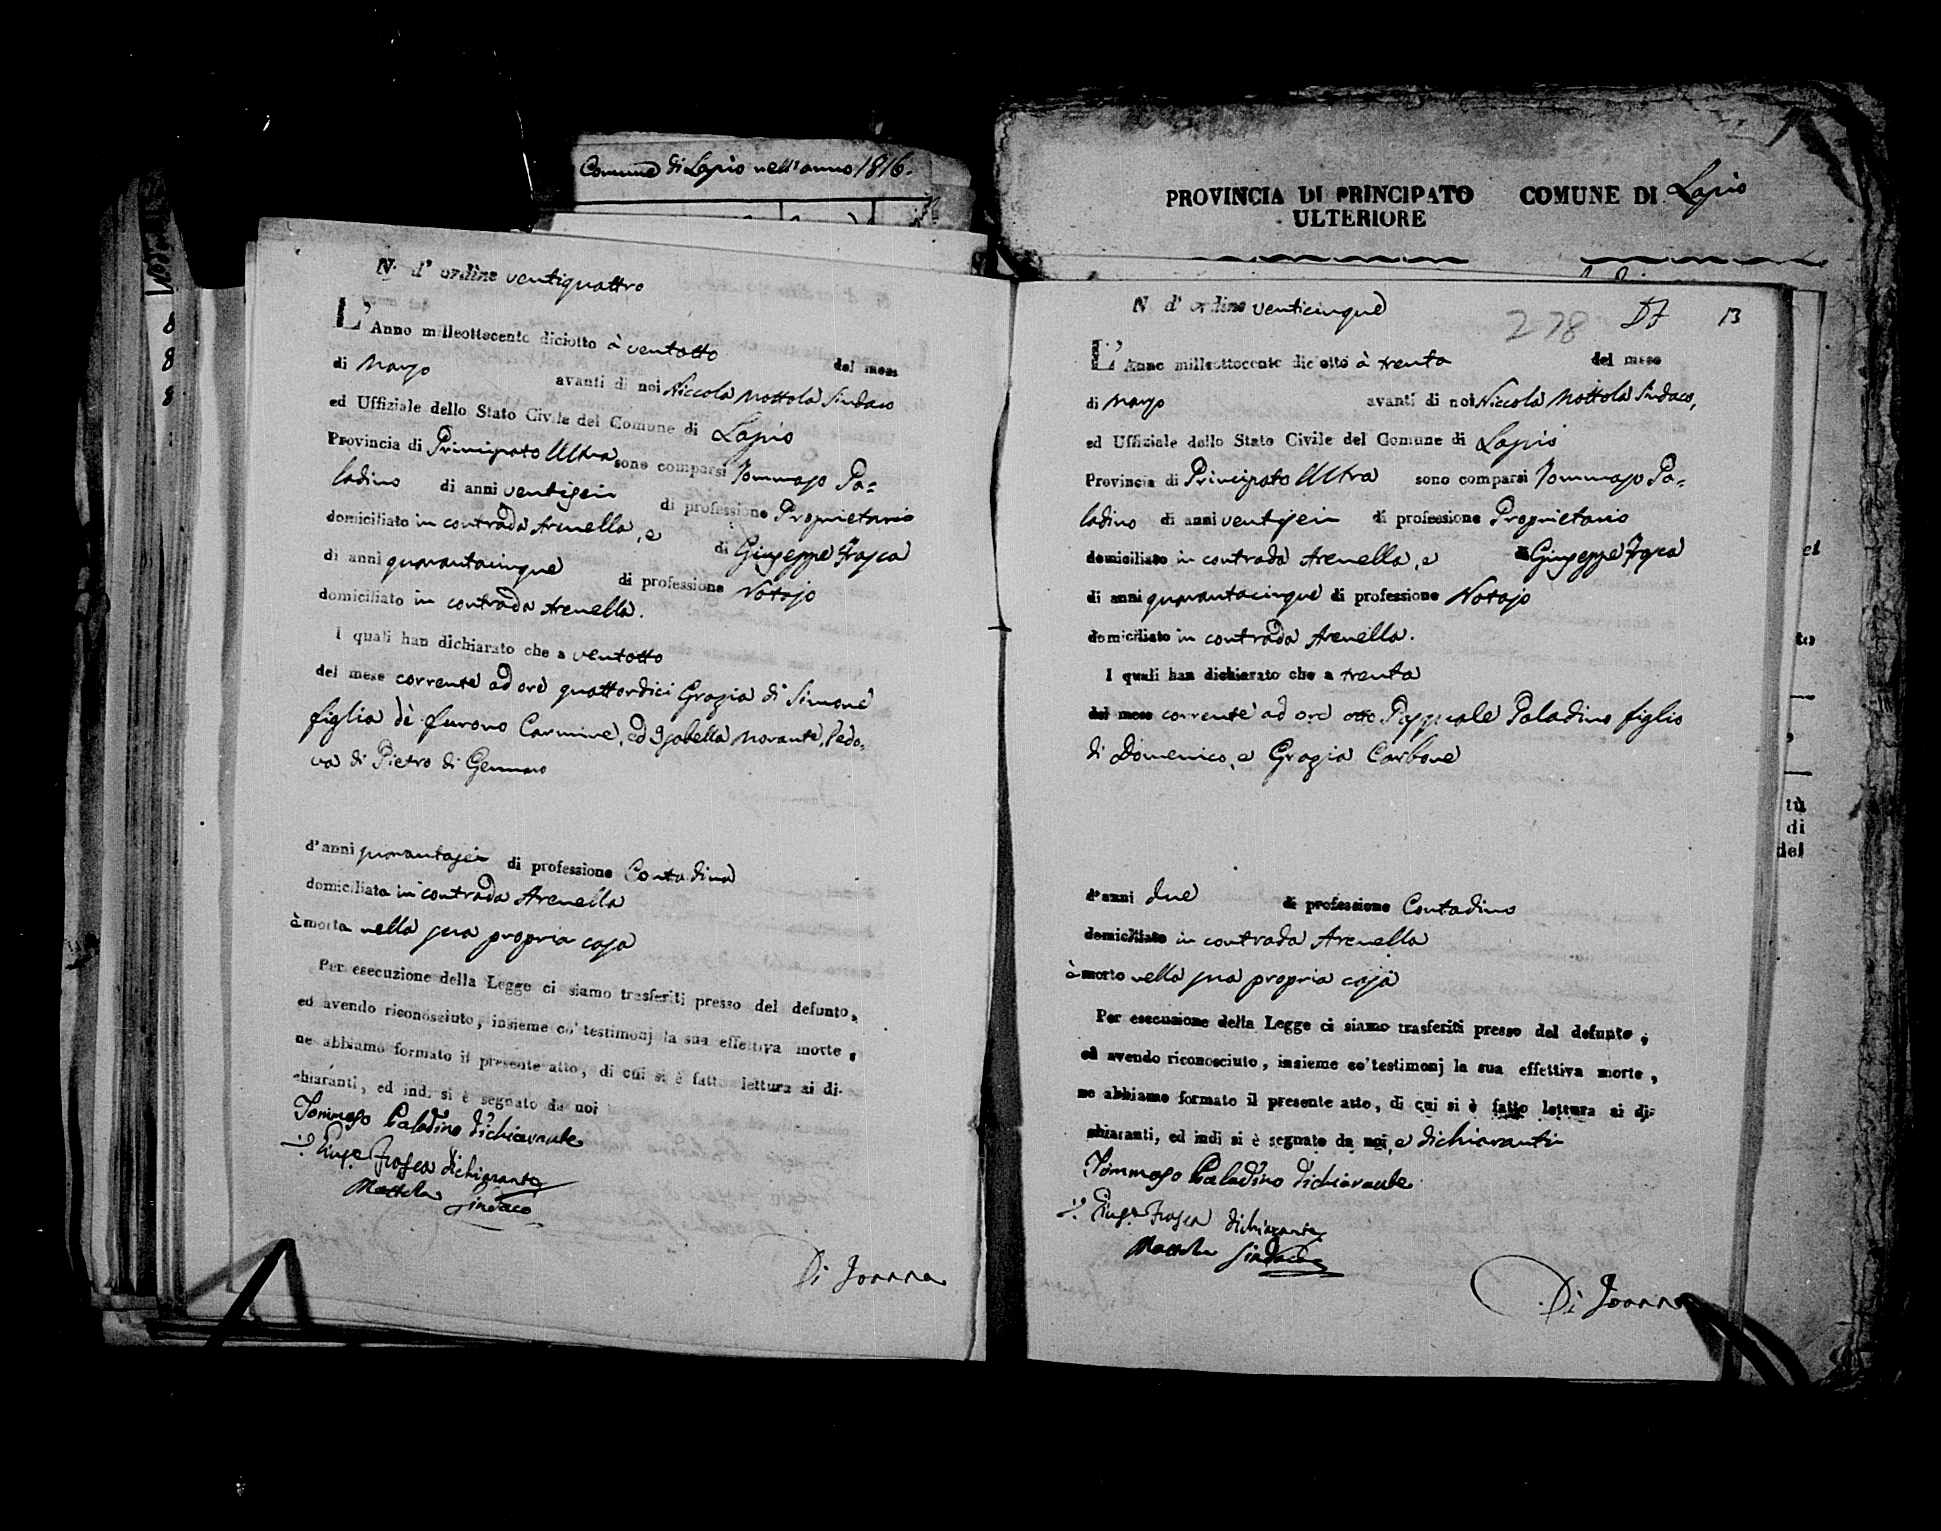 Comune di Lapio nell'anno 1816.
PROVINCIA DI PRINCIPATO ULTERIORE COMUNE DI Lapio
N. d' ordine ventiquattro
L'Anno milleottocento diciotto à ventotto del mese
di Marzo avanti di noi Niccola Mottola Sindaco
ed Uffiziale dello Stato Civile del Comune di Lapio
Provincia di Principato Ultra sono comparsi Tommaso Pa=
ladino di anni ventisein di professione Proprietario
domiciliato in contrada Arenella, e di Giuseppe Frasca
di anni quarantacinque di professione Notajo
domiciliato in contrada Arenella.
I quali han dichiarato che a ventotto
del mese corrente ad ore quattordici Grazia di Simone
figlia de furono Carmine, ed Isabella Morante, Vedo=
va di Pietro di Gennaro
d'anni quarantasein di professione Contadina
domiciliata in contrada Arenella
à morta nella sua propria casa
Per esecuzione della Legge ci siamo trasferiti presso del defunto,
ed avendo riconosciuto, insieme co' testimonj la sua effettiva morte,
ne abbiamo formato il presente atto, di cui si è fatto lettura ai di-
chiaranti, ed indi si è segnato da noi
Tommaso Paladino dichiarante
Giuse Frasca dichiarante
Mottola Sindaco
Di Joanna
N d' ordine venticinque
278 13
L'Anno milleottocento diciotto à trenta del mese
di Marzo avanti di noi Niccola Mottola Sindaco,
ed Uffiziale dello Stato Civile del Comune di Lapio
Provincia di Principato Ultra sono comparsi Tommaso Pa=
ladino di anni ventisein di professione Proprietario
domiciliato in contrada Arenella, e di Giuseppe Frasca
di anni quarantacinque di professione Notajo
domiciliato in contrada Arenella.
I quali han dichiarato che a trenta
del mese corrente ad ore otto Pasquale Paladino figlio
di Domenico, e Grazia Carbone
d'anni due di professione Contadino
domiciliato in contrada Arenella
à morto nella sua propria casa
Per esecuzione della Legge ci siamo trasferiti presso del defunto,
ed avendo riconosciuto, insieme co' testimonj la sua effettiva morte,
ne abbiamo formato il presente atto, di cui si è fatto lettura ai di-
chiaranti, ed indi si è segnato da noi, e dichiaranti
Tommaso Paladino dichiarante
Giuse Frasca dichiarante
Mottola Sindaco
Di Joanna